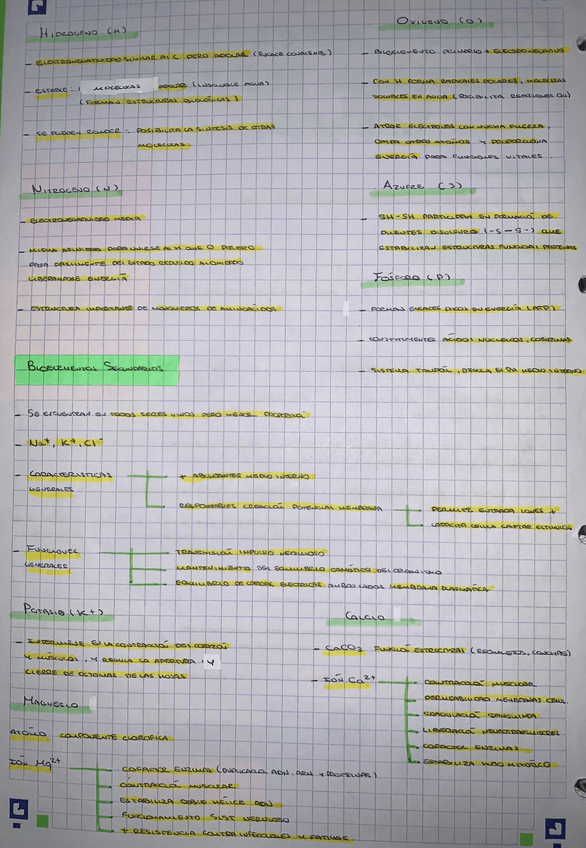 HIDRÓGENO (H)
- ELECTRONEGATIVIDAD SIMILAR AL C PERO APOLAR (ENLACE COVALENTE)
- ESTABLE: MOLÉCULAS APOLAR (INSOLUBLE AGUA)
(FORMAN ESTRUCTURAS BIOLÓGICAS)
- SE PUEDEN ROMPER: POSIBILITA LA SÍNTESIS DE OTRAS
MOLÉCULAS
NITRÓGENO (N)
- ELECTRONEGATIVIDAD MEDIA
- MISMA AFINIDAD PARA UNIRSE AL H QUE O
PASA FÁCILMENTE DEL ESTADO REDUCIDO AL OXIDADO
LIBERÁNDOSE ENERGÍA
- ESTRUCTURA IMPORTANTE DE MONÓMEROS DE AMINOÁCIDOS
OXÍGENO (O)
- BIOELEMENTO PRIMARIO + ELECTRONEGATIVO
- CON H FORMA RADICALES POLARES, MOLÉCULAS
SOLUBLES EN AGUA (POSIBILITA REACCIONES)
- ATRAE ELECTRONES CON MUCHA FUERZA,
OXIDA OTROS ÁTOMOS Y PROPORCIONA
ENERGÍA PARA FUNCIONES VITALES.
AZUFRE (S)
- SH-SH PARTICIPAN EN FORMACIÓ DE
PUENTES DISULFURO (-S-S-) QUE
ESTABILIZAN ESTRUCTURAS FUNCIONAL PROTEÍNAS
FÓSFORO (P)
- FORMAN ENLACES RICOS EN ENERGÍA (ATP)
- CONSTITUYENTES ÁCIDOS NUCLEICOS, COENZIMAS
- SISTEMA TAMPÓ, REGULA EL PH MEDIO INTERNO
BIOELEMENTOS SECUNDARIOS
- SE ENCUENTRAN EN TODOS SERES VIVOS PERO MENOR PROPORCIÓ
- Na+, K+, Cl-
- CARACTERÍSTICAS
GENERALES
+ ABUNDANTES MEDIO INTERNO
RESPONSABLES CREACIÓ POTENCIAL MEMBRANA
PERMITE ENTRADA IONES +
- FUNCIONES
GENERALES
TRANSMISIÓ IMPULSO NERVIOSO
MANTENIMIENTO DEL EQUILIBRIO OSMÓTICO DEL ORGANISMO
EQUILIBRIO DE CARGAS ELÉCTRICAS AMBOS LADOS MEMBRANA PLASMÁTICA
POTASIO (K+)
- INTERVIENE EN LA CONTRACCIÓ DEL CORAZÓ
Y MÚSCULOS, Y REGULA LA APERTURA Y
CIERRE DE OSTIOLOS DE LAS HOJAS
MAGNESIO
ÁTOMO COMPONENTE CLOROFILA
IÓN Mg2+
COFACTOR ENZIMAS (DUPLICADO ADN, ARN Y PROTEÍNAS)
CONTRACCIÓ MUSCULAR
ESTABILIZA DOBLE HÉLICE ADN
FUNCIONAMIENTO SIST NERVIOSO
+ RESISTENCIA CONTRA INFECCIONES Y FATIGAS
CALCIO
- CaCO3 FUNCIÓ ESTRUCTURAL (ESQUELETOS, CONCHAS)
- IÓN Ca2+
CONTRACCIÓ MUSCULAR
PERMEABILIDAD MEMBRANAS CEL.
COAGULACIÓ SANGUÍNEA
LIBERACIÓ NEUROTRANSMISORES
COFACTOR ENZIMAS
ESTABILIZA HUSO MITÓTICO